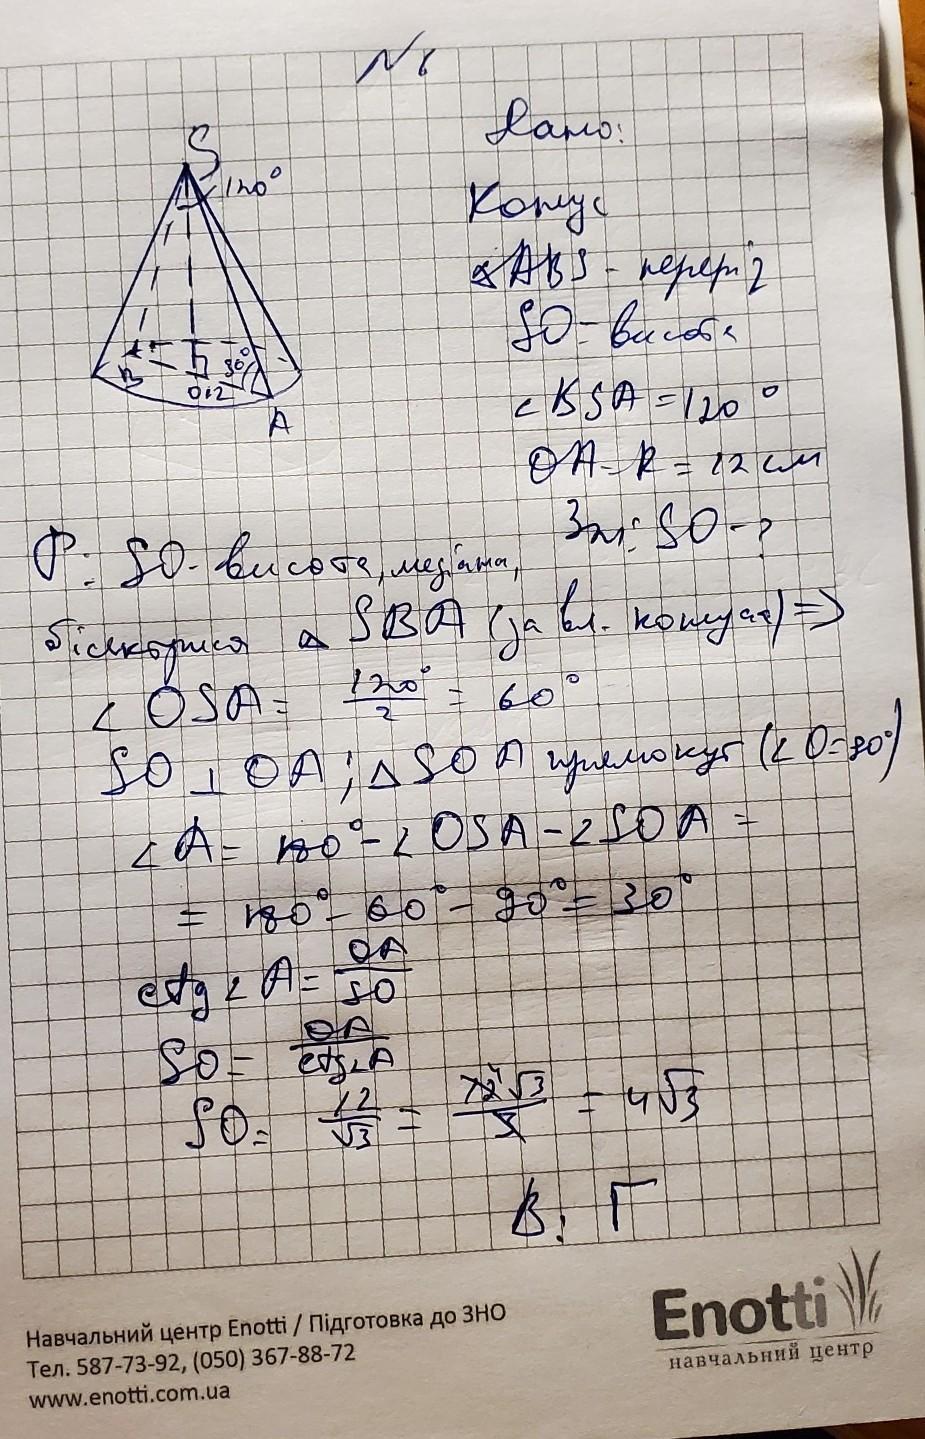 №6
S
120°
B
30°
O12
A
Дано:
Конус
△ABS - переріз
SO - висота
∠BSA = 120°
OA - R = 12 см
Зн: SO - ?
Р: SO - висота, медіана,
бісектриса △ SBA (за вл. конуса) ⇒
∠ OSA = 120°/2 = 60°
SO ⊥ OA; △ SOA прямокут (∠O=90°)
∠A = 180° - ∠OSA - ∠SOA =
= 180° - 60° - 90° = 30°
ctg∠A = OA/SO
SO = OA/ctg∠A
SO = 12/√3 = 12√3/3 = 4√3
В: Г
Навчальний центр Enotti / Підготовка до ЗНО
Тел. 587-73-92, (050) 367-88-72
www.enotti.com.ua
Enotti
навчальний центр